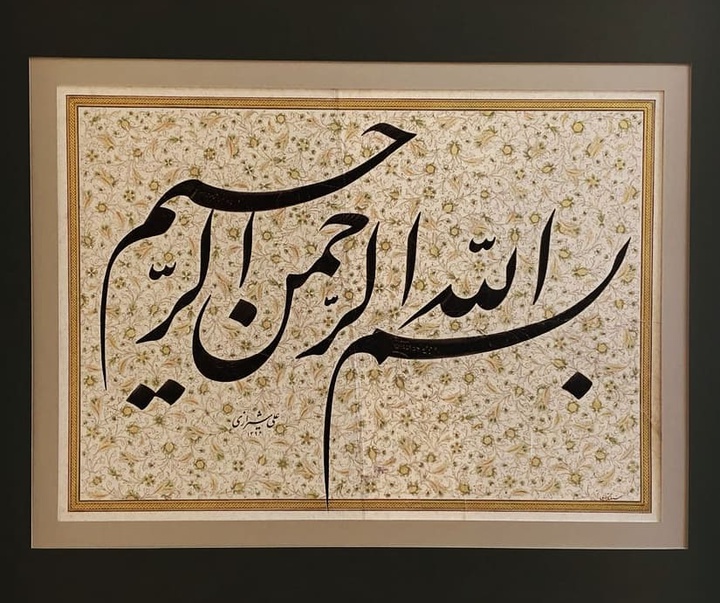 بسم الله الرّحمن الرّحیم
علی شیرازی